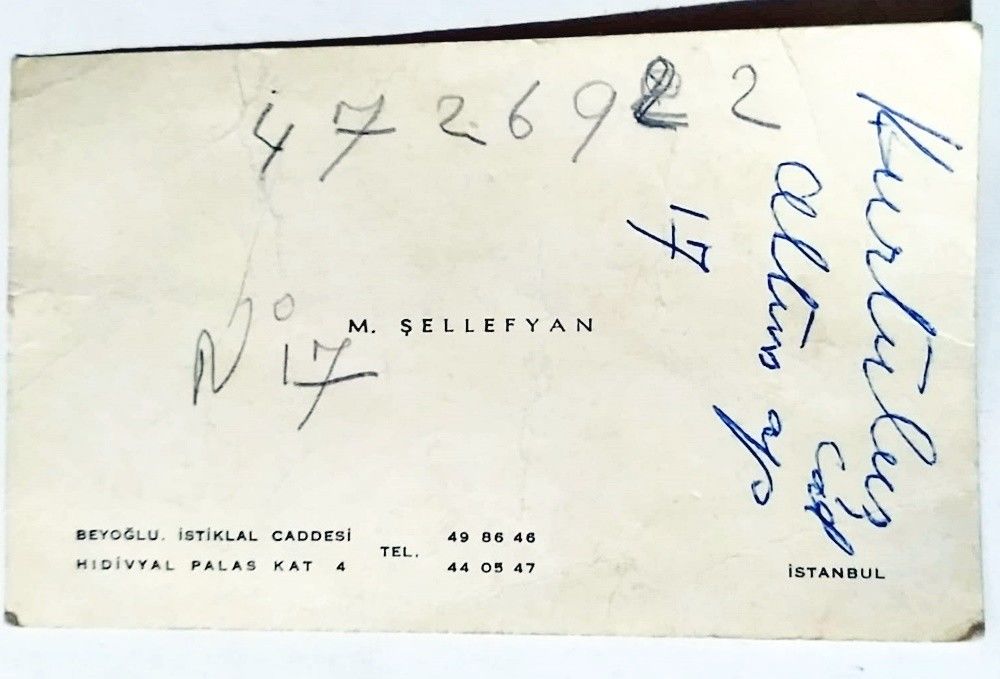 4726922
Kurtuluş
cad
altın ap
17
No 17
M. ŞELLEFYAN
BEYOĞLU. İSTİKLAL CADDESİ
HIDİVYAL PALAS KAT 4
TEL.
49 86 46
44 05 47
İSTANBUL